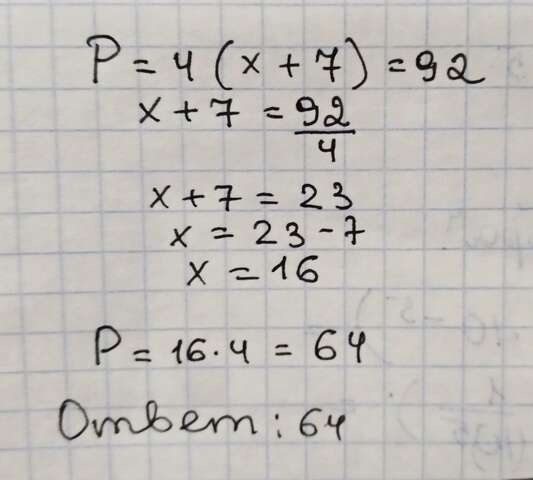 P = 4 (x + 7) = 92
x + 7 = 92/4
x + 7 = 23
x = 23 - 7
x = 16
P = 16 · 4 = 64
Ответ: 64